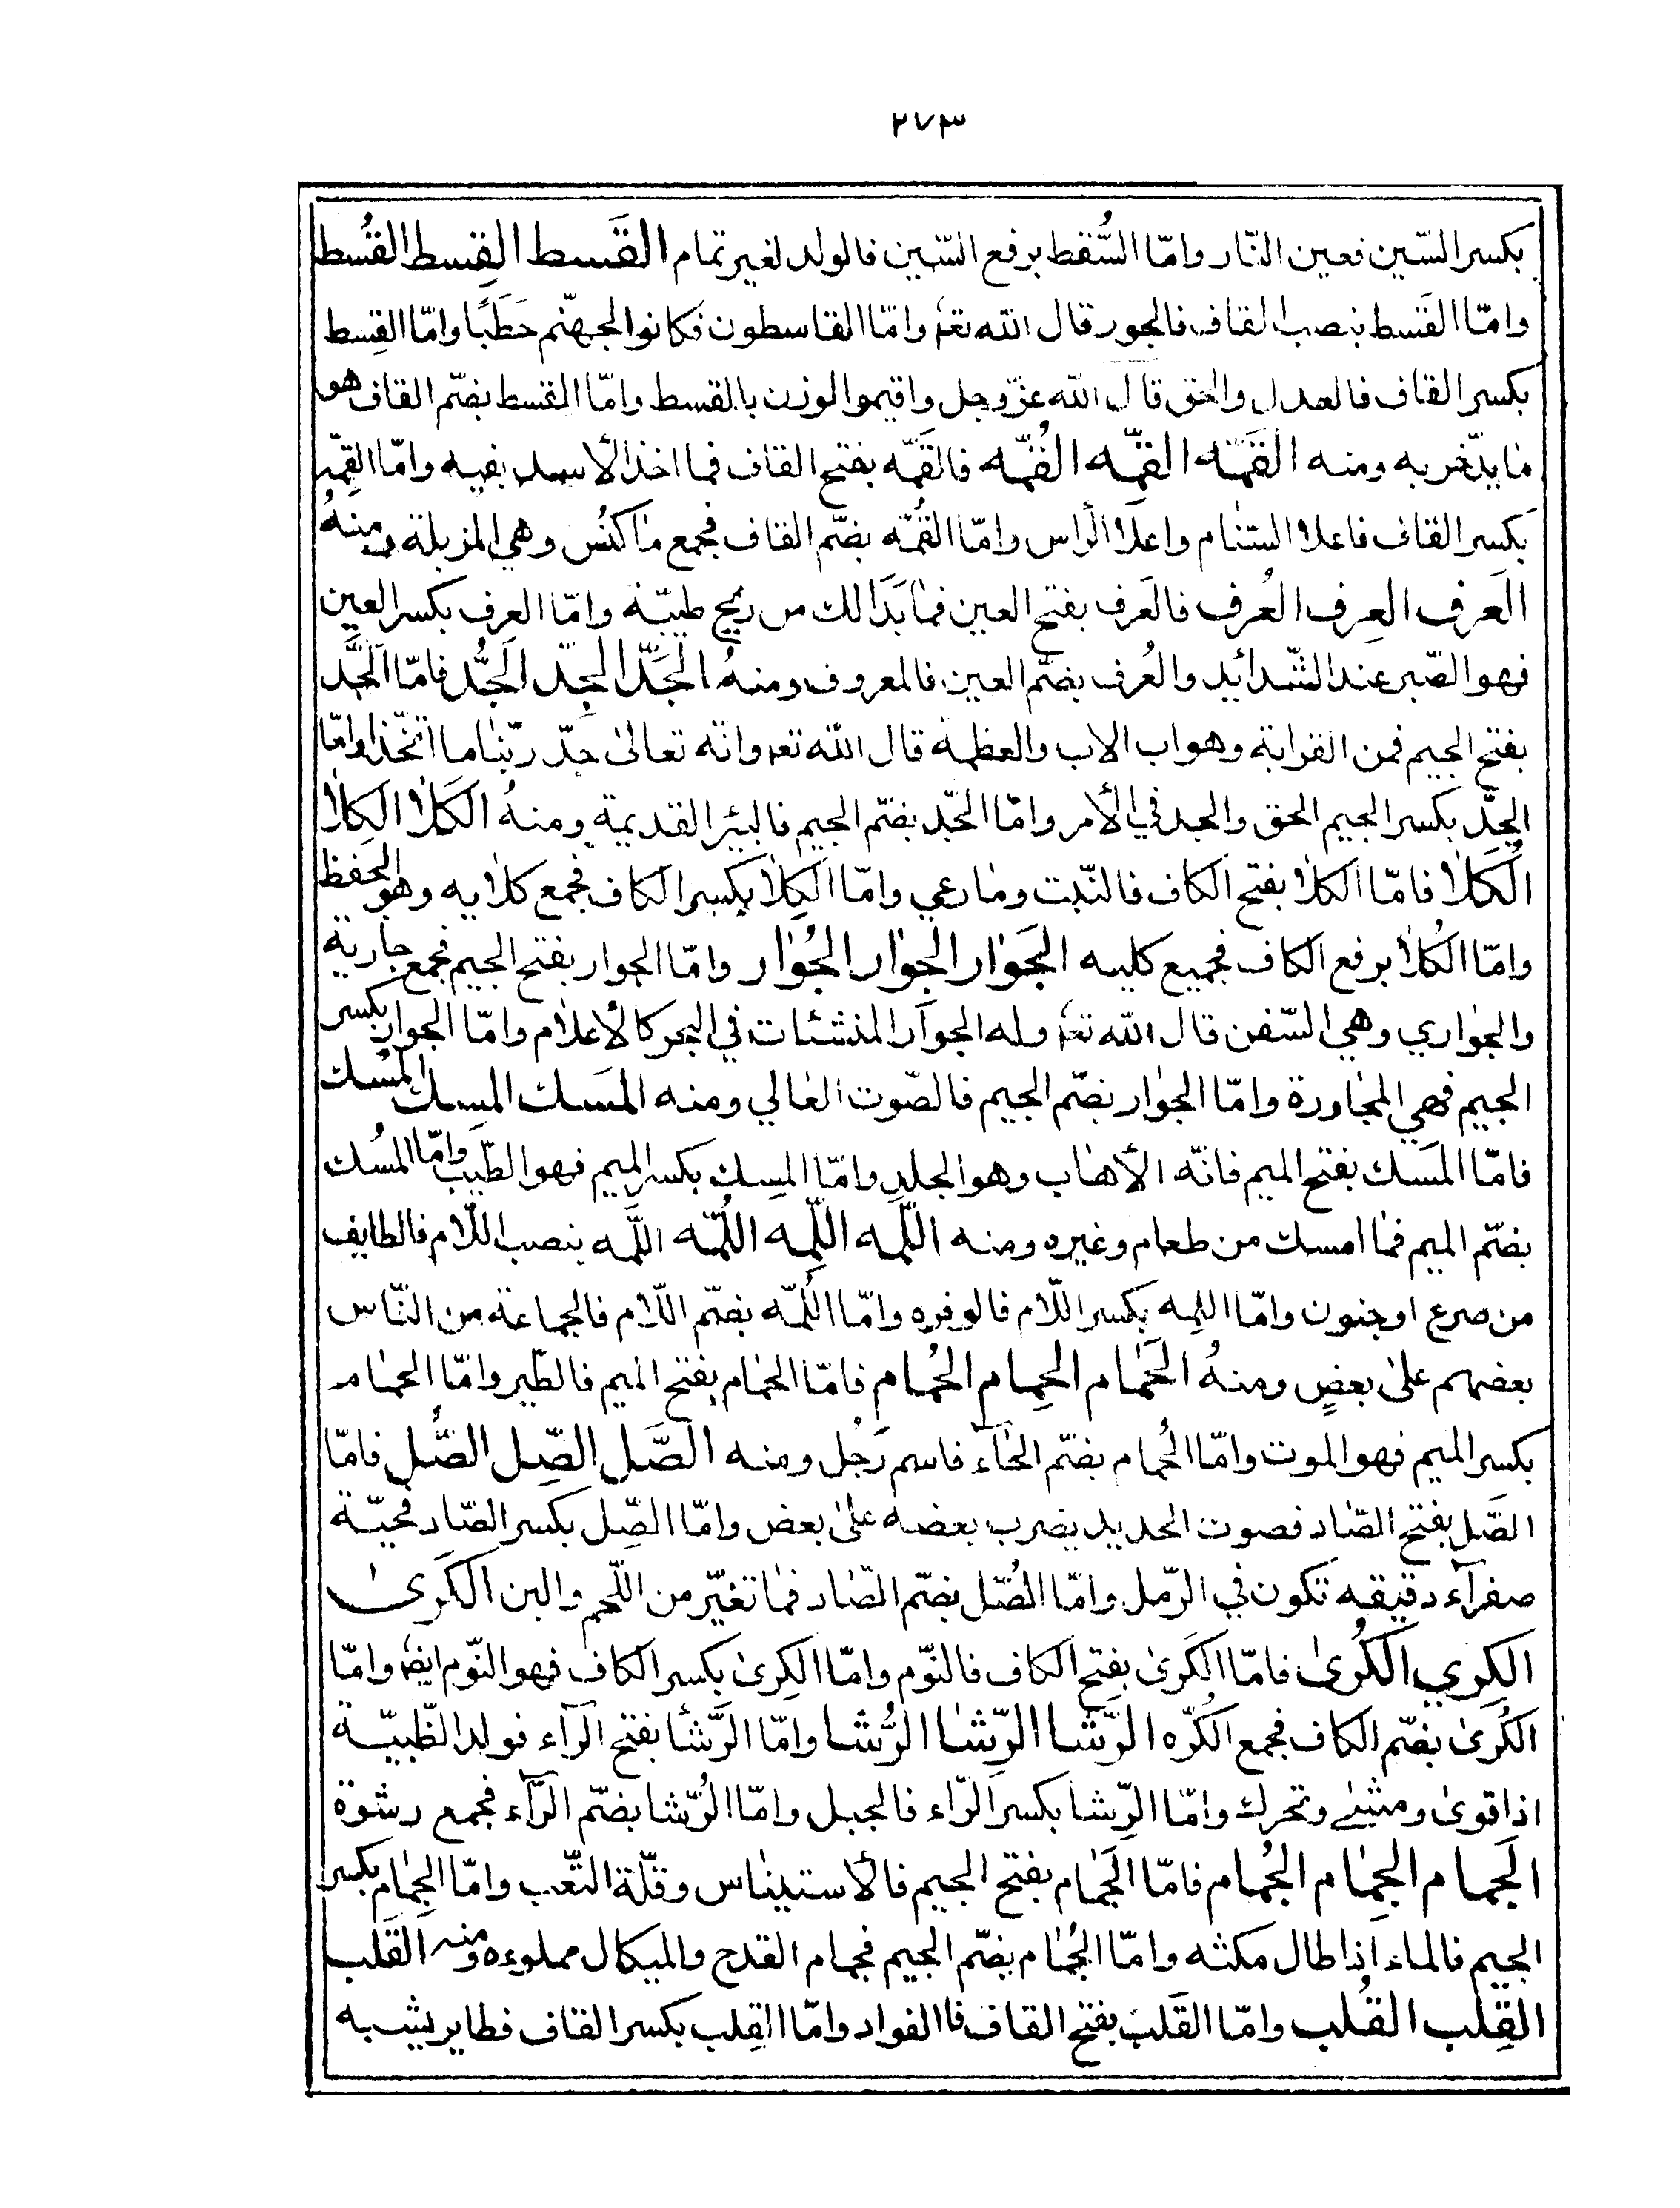 ٢٧٣
بكسر السّين فعين النّار وامّا السُّقط برفع السّين فالولد لغير تمام القَسط القِسط القُسط
وامّا القَسط بنصب القاف فالجور قال الله تعا وامّا القاسطون فكانوا لجهنّم حَطَبًا وامّا القِسط
بكسر القاف فالعدل والحق قال الله عزّ وجل واقيموا الوزن بالقسط وامّا القسط بضّم القاف هو
ما يدّخر به ومنه القَمّه القِمّه القُمّه فالقَمّه بفتح القاف فما اخذ الأسد بفيه وامّا القِمّه
بكسر القاف فاعلا السّنام واعلا الرّاس وامّا القُمّه بضّم القاف فجمع ما كنُس وهي المزبلة ومنهُ
العَرف العِرف العُرف فالعَرف بفتح العين فما بَدَا لك من ريح طيّبة وامّا العرف بكسر العين
فهو الصّبر عند الشّدائيد والعُرف بضّم العين فالمعروف ومنهُ الجَدّ الجِدّ الجُدّ فامّا الجَدّ
بفتح الجيم فمن القرابة وهو اب الاب والعظمة قال الله تعا وانّه تعالىٰ جدّ ربّنا ما اتّخذ وامّا
الجِدّ بكسر الجيم الحق والجد في الأمر وامّا الجُد بضّم الجيم فالبئر القديمة ومنهُ الكَلأ الكِلأ
الكُلأ فامّا الكلأ بفتح الكاف فالنّبت وما رعي وامّا الكِلأ بكسر الكاف فجمع كلايه وهو الحفظ
وامّا الكُلأ برفع الكاف فجميع كليه الجَوار الجِوار الجُوار وامّا الجوار بفتح الجيم فجمع جارية
والجواري وهي السّفن قال الله تعا وله الجوار المنشئات في البحر كالأعلام وامّا الجوار بكسر
الجيم فهي المجاورة وامّا الجوار بضّم الجيم فالصّوت العالي ومنه المَسك المِسك المُسك
فامّا المَسك بفتح الميم فانّه الأهاب وهو الجلد وامّا المِسك بكسر الميم فهو الطّيب وامّا المُسك
بضّم الميم فما امسك من طعام وغيره ومنه اللَّمه اللِّمه اللُّمّه اللَّمه بنصب اللّام فالطايف
من صرع او جنون وامّا اللِمه بكسر اللّام فالوفره وامّا اللُمّه بضّم اللّام فالجماعة من النّاس
بعضهم علىٰ بعضٍ ومنهُ الحَمام الحِمام الحُمام فامّا الحمام بفتح الميم فالطّير وامّا الحمام
بكسر الميم فهو الموت وامّا الحُمام بضّم الحآء فاسم رَجُل ومنه الصَّل الصِّل الصُّل فامّا
الصَّل بفتح الصّاد فصوت الحديد يضرب بعضه علىٰ بعض وامّا الصِّل بكسر الصّاد فحيّة
صفرآء دقيقه تكون في الرّمل وامّا الصُّل بضّم الصّاد فما تغيّر من اللّحم والبن الكَرىٰ
الكِري الكُرىٰ فامّا الكَرىٰ بفتح الكاف فالنّوم وامّا الكِرىٰ بكسر الكاف فهو النّوم ايضا وامّا
الكُرىٰ بضّم الكاف فجمع الكُرّه الرَّشا الرِّشا الرُّشا وامّا الرَّشأ بفتح الرآء فولد الظّبيّة
اذا قوىٰ ومشىٰ وتحرك وامّا الرِّشا بكسر الرّاء فالحبل وامّا الرُّشا بضّم الرّآء فجمع رشوة
الجَمام الجِمام الجُمام فامّا الجَمام بفتح الجيم فالأستيناس وقلّة التّعب وامّا الجِمام بكسر
الجيم فالماء اذا طال مكثه وامّا الجُمام بضّم الجيم فجمام القدح والميكال مملوءه ومنه القَلب
القِلب القُلب وامّا القَلب بفتح القاف فاالفواد وامّا القِلب بكسر القاف فطاير يشبه